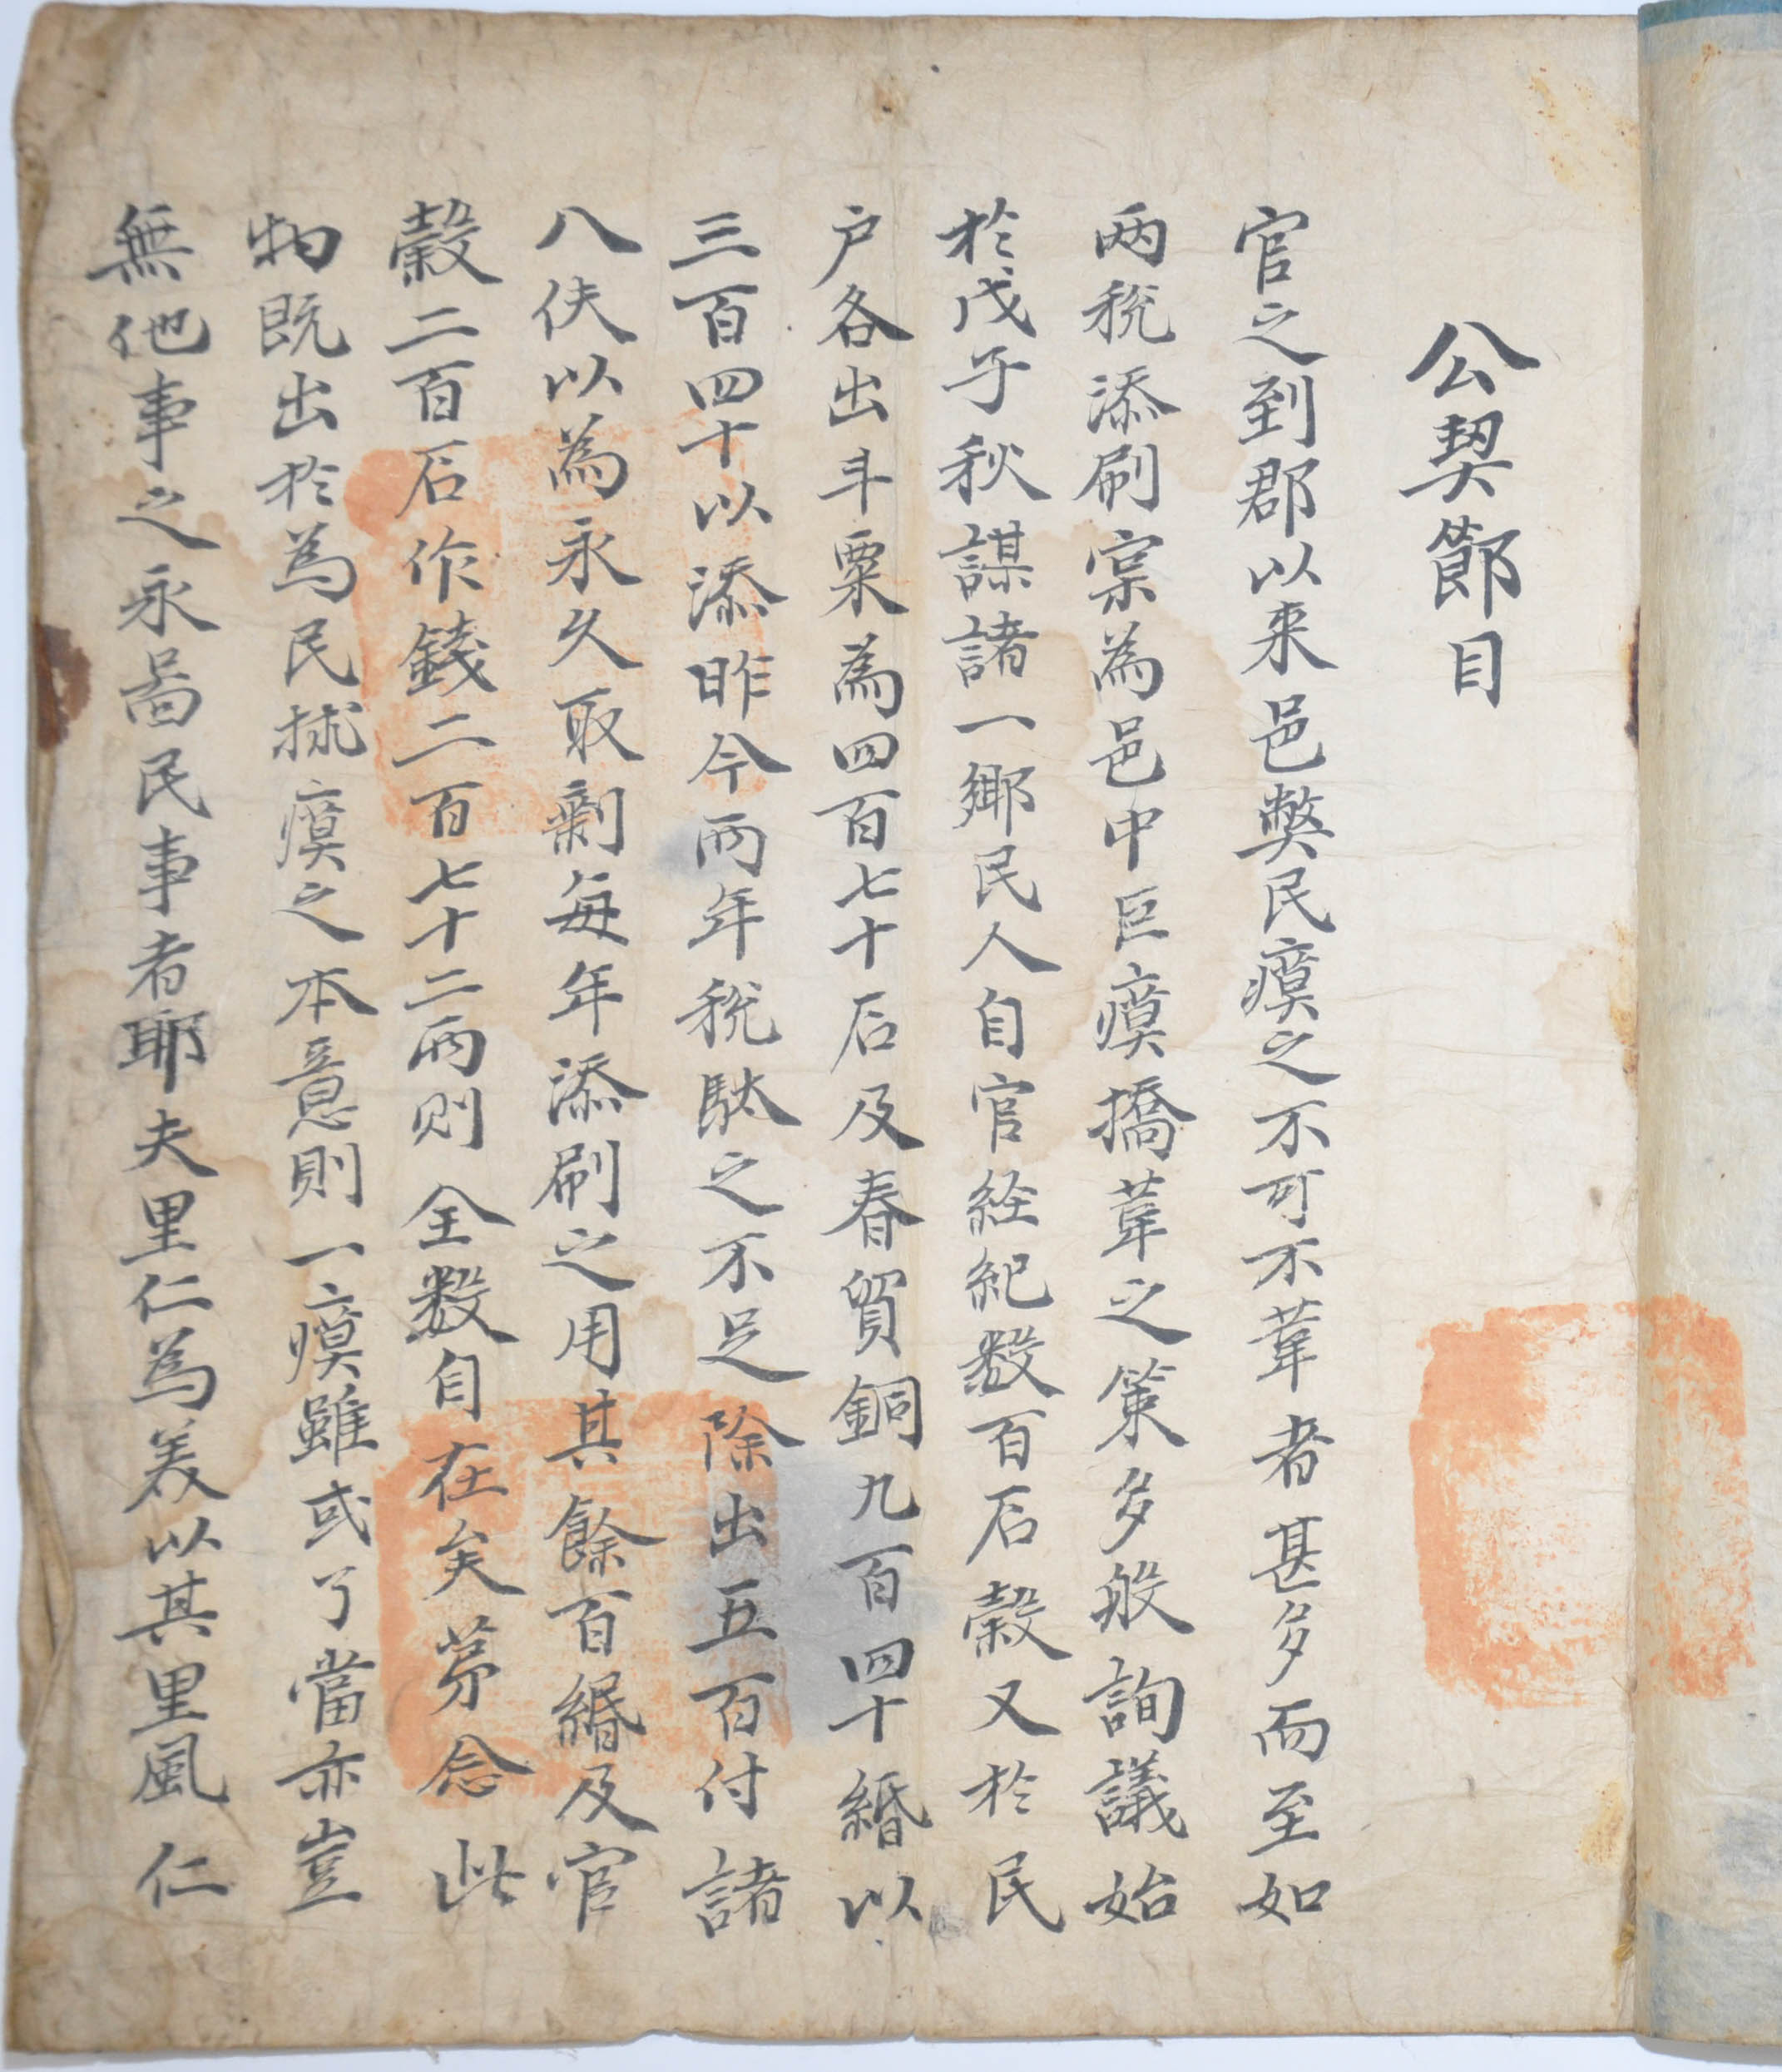 公契節目
官之到郡以来邑弊民瘼之不可不革者甚多而至如
两税添刷寔為邑中巨瘼撟革之策多般詢議始
於戊子秋謀諸一鄉民人自官経紀数百石穀又於民
户各出斗粟為四百七十石及春貿銅九百四十緡以
三百四十以添昨今兩年税駄之不足除出五百付諸
八伕以為永久取剩每年添刷之用其餘百緡及官
穀二百石作錢二百七十二兩則全数自在矣苐念此
物既出於為民捄瘼之本意則一瘼雖或了當亦豈
無他事之永啚民事者耶夫里仁為羙以其里風仁